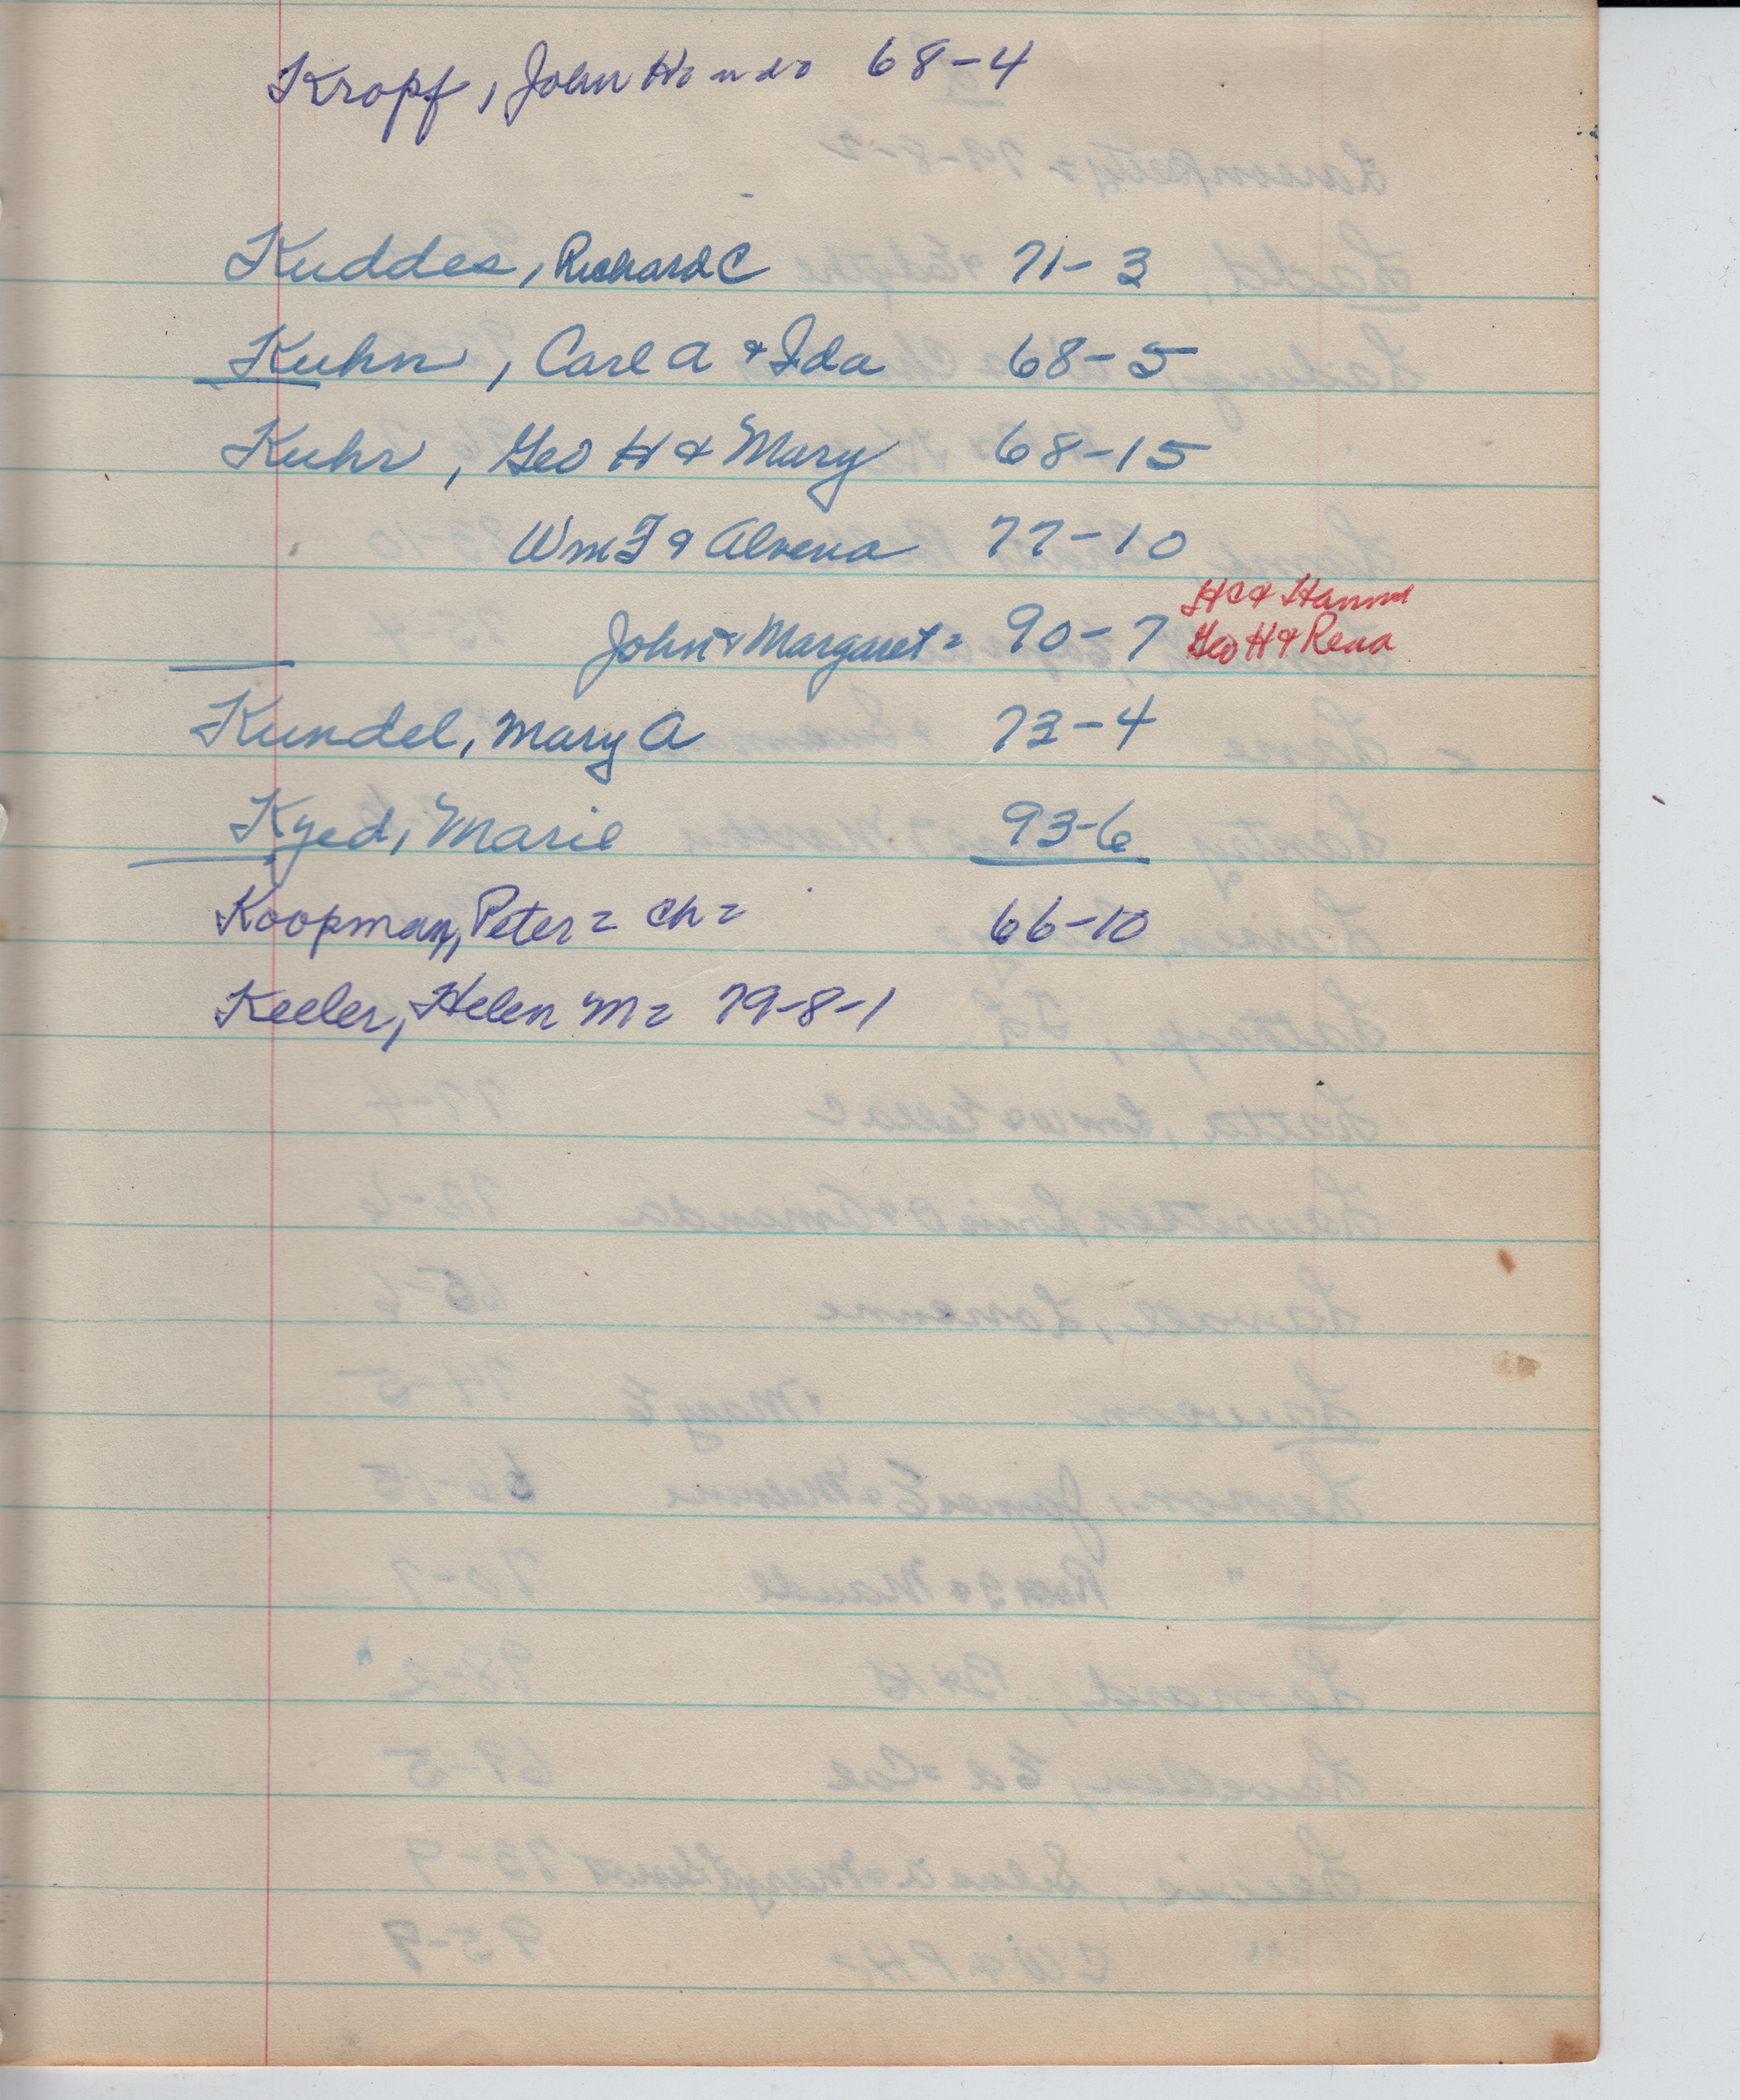 Kropf, John H 68-4
Kuddes, Richard C 71-3
Kuhn, Carl A & Ida 68-5
Kuhr, Geo H & Mary 68-15
Wm F & Alvena 77-10
HC & Hanna
John & Margaret = 90-7 Geo H & Rena
Kundel, Mary A 73-4
Kyed, Marie 93-6
Koopman, Peter = ch = 66-10
Keeler, Helen M = 79-8-1